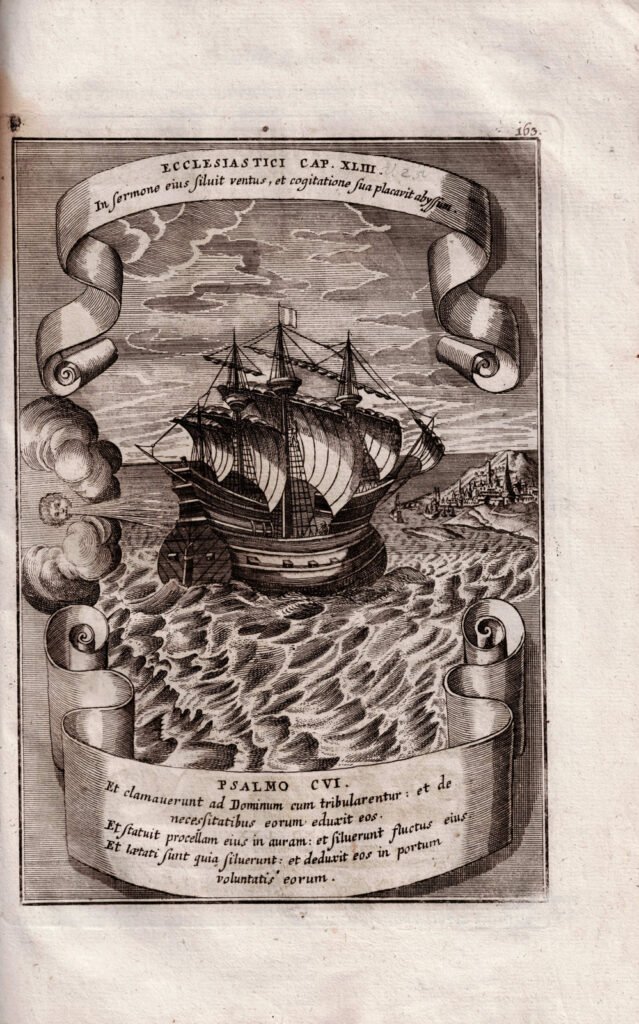 163.
ECCLESIASTICI CAP. XLIII.
In sermone eius siluit ventus, et cogitatione sua placavit abyssum.
PSALMO CVI.
Et clamaverunt ad Dominum cum tribularentur: et de
necessitatibus eorum eduxit eos.
Et statuit procellam eius in auram: et siluerunt fluctus eius
Et lætati sunt quia siluerunt: et deduxit eos in portum
voluntatis eorum.